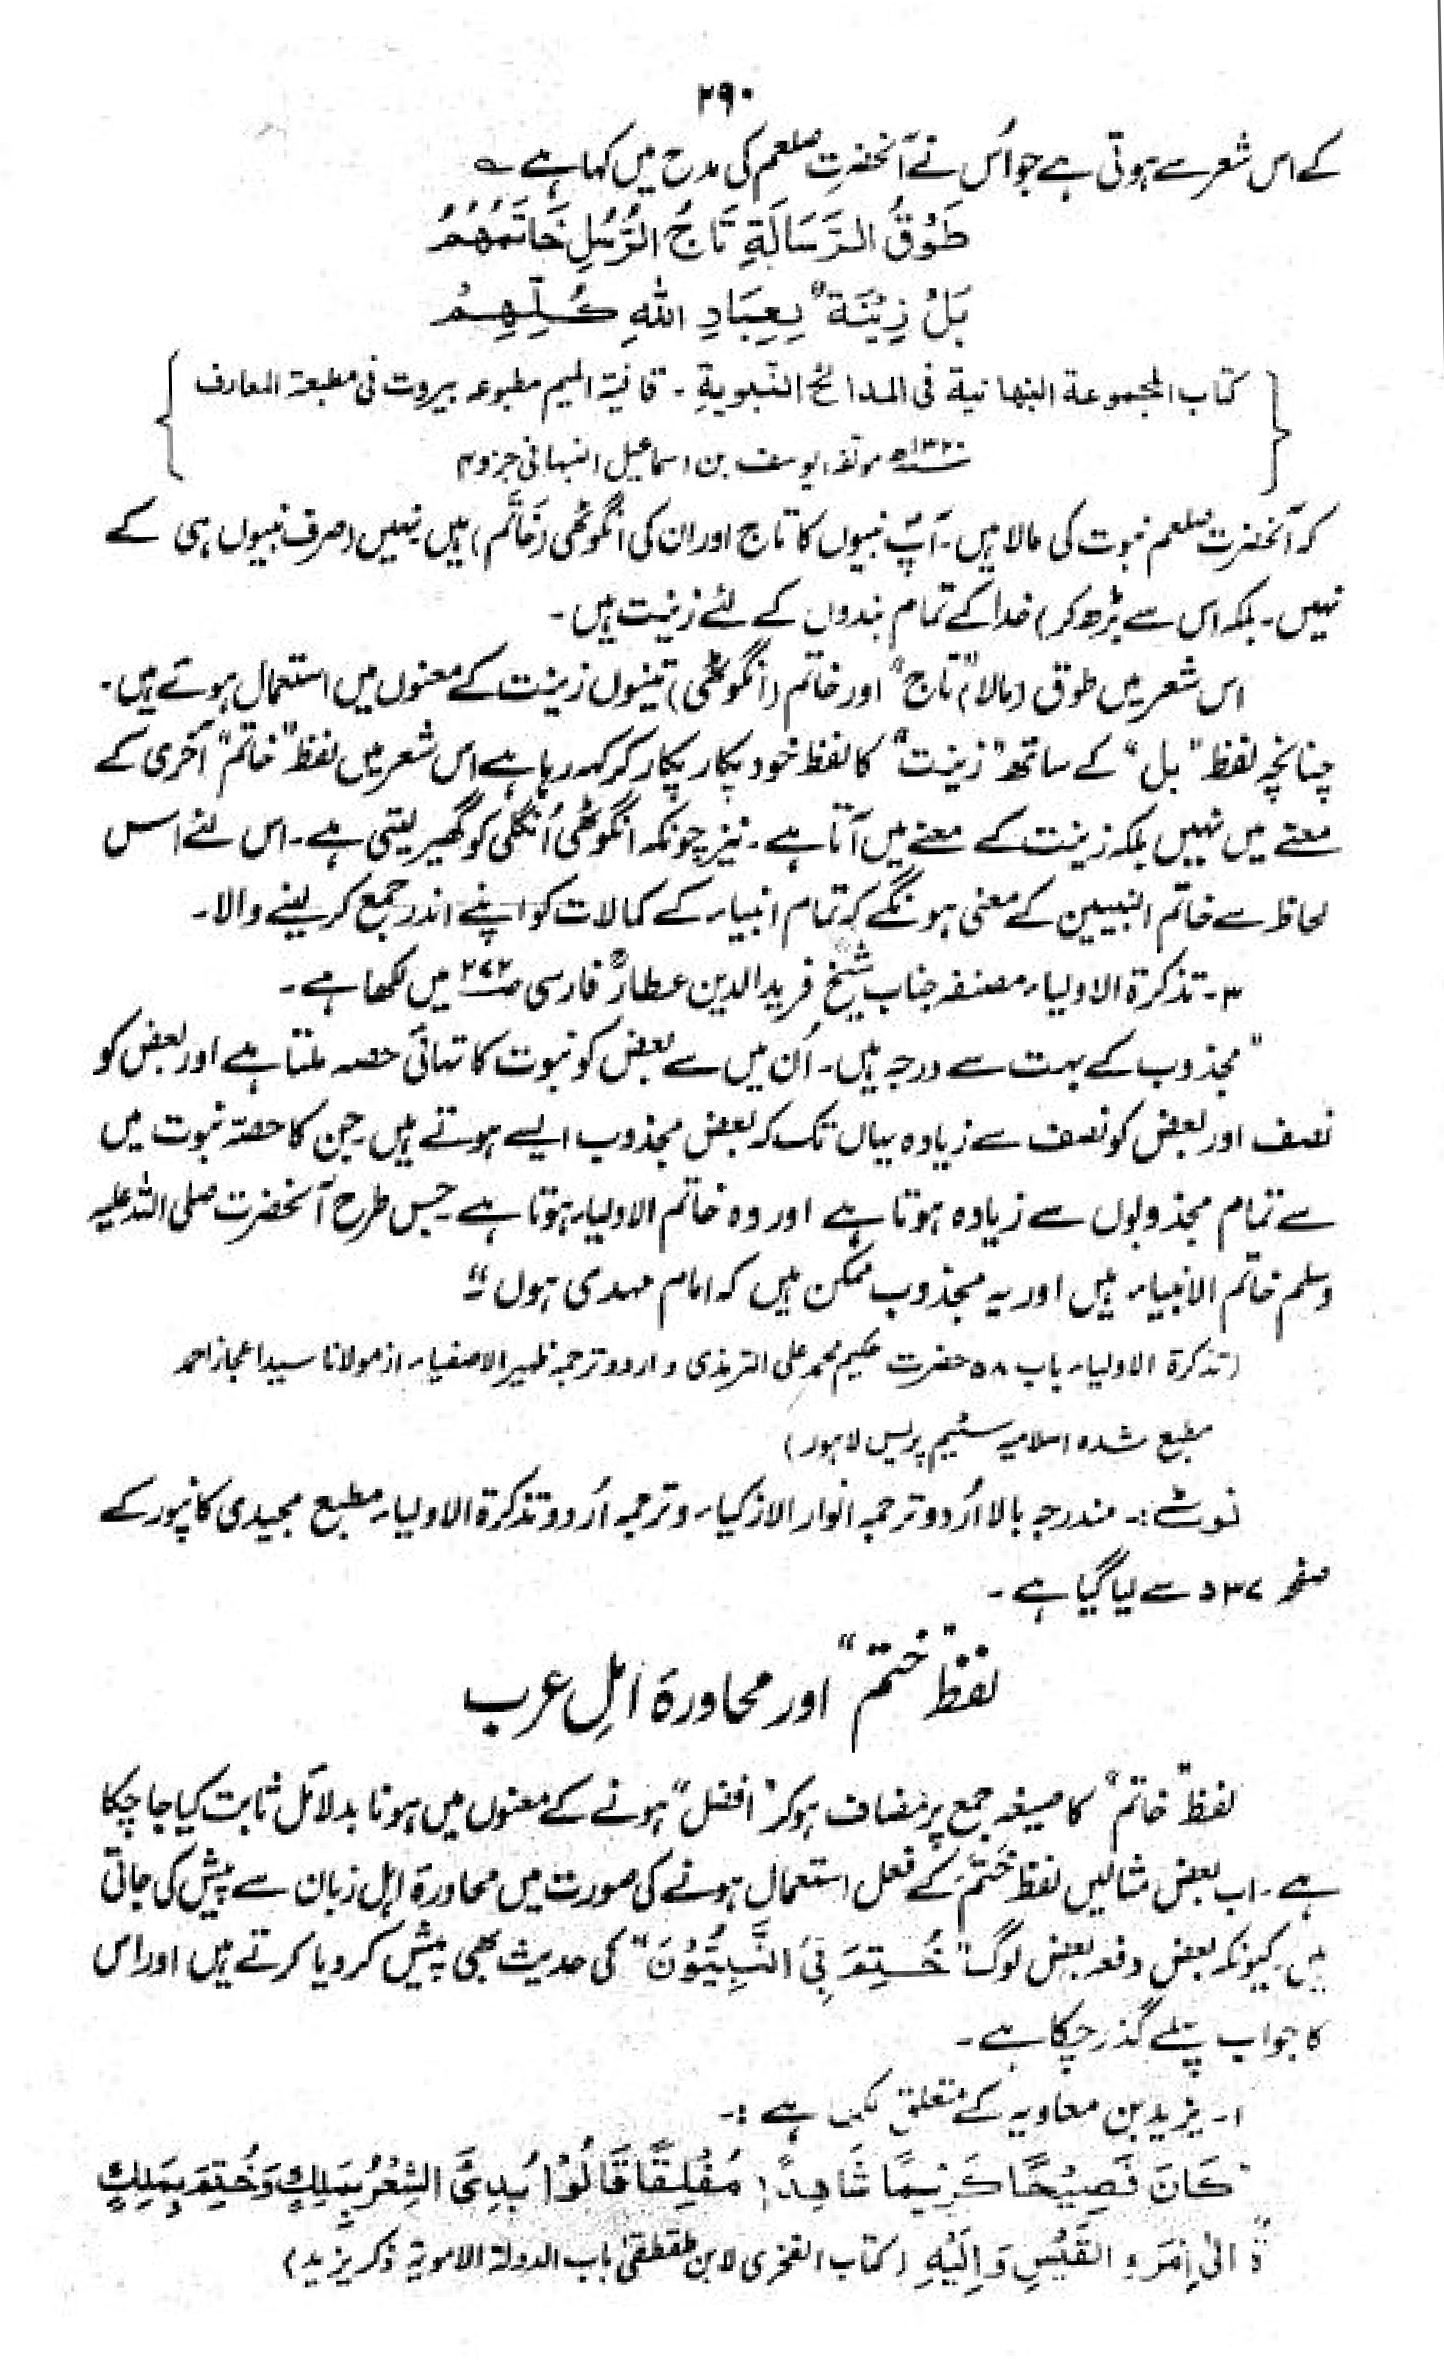 ۲۹۰
کے اس شعر سے ہوتی ہے جو اُس نے آنحضرت صلعم کی مدح میں کہا ہے ؎
طَوْقُ الرَّسَالَةِ تَاجُ الرُّسُلِ خَاتَمُهُمُ
بَلْ زِيْنَةٌ لِعِبَادِ اللهِ كُلِّهِمُ
{ کتاب المجموعة النبهانية فی المدائح النبویة ۔ قافیۃ المیم مطبوعہ بیروت فی مطبعۃ المعارف
۱۳۲۰ھ مولفہ یوسف بن اسماعیل النبہانی جزو ۴ }
کہ آنحضرت صلعم نبوت کی مالا ہیں۔ آپؐ نبیوں کا تاج اور ان کی انگوٹھی (خَاتَم) ہیں نہیں (صرف نبیوں ہی کے
نہیں۔ بلکہ اس سے بڑھ کر) خدا کے تمام بندوں کے لئے زینت ہیں۔
اس شعر میں طوق (مالا) "تاج" اور خاتم (انگوٹھی) تینوں زینت کے معنوں میں استعمال ہوئے ہیں۔
چنانچہ لفظ "بل" کے ساتھ "زینت" کا لفظ خود پکار پکار کر کہہ رہا ہے اس شعر میں لفظ "خاتم" آخری کے
معنے میں نہیں بلکہ زینت کے معنے میں آتا ہے۔ نیز چونکہ انگوٹھی اُنگلی کو گھیر لیتی ہے۔ اس لئے اس
لحاظ سے خاتم النبیین کے معنی ہونگے کہ تمام انبیاء کے کمالات کو اپنے اندر جمع کر لینے والا۔
۳۔ تذکرۃ الاولیاء مصنفہ جناب شیخ فرید الدین عطارؒ فارسی ص۲۷۲ میں لکھا ہے۔
"مجذوب کے بہت سے درجہ ہیں۔ اُن میں سے بعض کو نبوت کا تہائی حصہ ملتا ہے اور بعض کو
نصف اور بعض کو نصف سے زیادہ یہاں تک کہ بعض مجذوب ایسے ہوتے ہیں جن کا حصہ نبوت میں
سے تمام مجذوبوں سے زیادہ ہوتا ہے اور وہ خاتم الاولیاء ہوتا ہے۔ جس طرح آنحضرت صلی اللہ علیہ
وسلم خاتم الانبیاء ہیں اور یہ مجذوب ممکن ہیں کہ امام مہدی ہوں"
(تذکرۃ الاولیاء باب ۵۸ حضرت حکیم محمد علی الترمذی و اردو ترجمہ ظہیر الاصفیاء از مولانا سید اعجاز احمد
مطبع شدہ اسلامیہ سٹیم پریس لاہور)
نوٹ:۔ مندرجہ بالا اُردو ترجمہ انوار الازکیاء و ترجمہ اُردو تذکرۃ الاولیاء مطبع مجیدی کانپور کے
صفحہ ۵۳۷ سے لیا گیا ہے۔
لفظ "ختم" اور محاورۂ اہلِ عرب
لفظ "خاتم" کا صیغہ جمع پر مضاف ہو کر "افضل" ہونے کے معنوں میں ہونا بدلائل ثابت کیا جا چکا
ہے۔ اب بعض مثالیں لفظ خَتَمَ کے فعل استعمال ہونے کی صورت میں محاورۂ اہل زبان سے پیش کی جاتی
ہیں۔ کیونکہ بعض دفعہ بعض لوگ "خُتِمَ بِيَ النَّبِيُّوْنَ" کی حدیث بھی پیش کر دیا کرتے ہیں اور اس
کا جواب پہلے گذر چکا ہے۔
۱۔ یزید بن معاویہ کے متعلق لکھا ہے:۔
"كَانَ فَصِيْحًا كَرِيْمًا شَاعِرًا مُفْلِقًا قَالُوْا بُدِئَ الشِّعْرُ بِمَلِكٍ وَخُتِمَ بِمَلِكٍ
اِلٰى اِمْرَءِ الْقَيْسِ وَاِلَيْهِ" (کتاب الفخری لابن طقطقیٰ باب الدولۃ الامویۃ ذکر یزید)